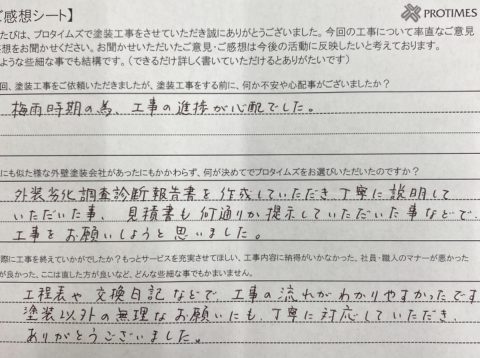 ご感想シート】
PROTIMES
たびは、プロタイムズで塗装工事をさせていただき誠にありがとうございました。今回の工事について率直なご意見
感想をお聞かせください。お聞かせいただいたご意見・ご感想は今後の活動に反映したいと考えております。
ような些細な事でも結構です。(できるだけ詳しく書いていただけるとありがたいです)
回、塗装工事をご依頼いただきましたが、塗装工事をする前に、何か不安や心配事がございましたか?
梅雨時期の為、工事の進捗が心配でした。
にも似た様な外壁塗装会社があったにもかかわらず、何が決めてでプロタイムズをお選びいただいたのですか?
外装劣化調査診断報告書を作成していただき、丁寧に説明して
いただいた事、見積書も何通りか提示していただいた事などで
工事をお願いしようと思いました。
際に工事を終えていかがでしたか?もっとサービスを充実させてほしい、工事内容に納得がいかなかった、社員・職人のマナーが悪かった
が良かった、ここは直した方が良いなど、どんな些細な事でもかまいません。
工程表や交換日記などで、工事の流れがわかりやすかったです
塗装以外の無理なお願いにも、丁寧に対応していただき、
ありがとうございました。